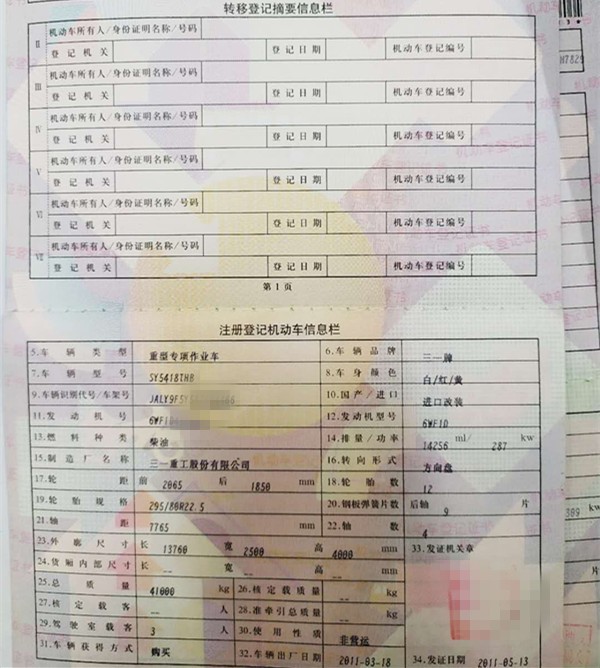 转移登记摘要信息栏
II 机动车所有人/身份证明名称/号码
登记机关 登记日期 机动车登记编号
III 机动车所有人/身份证明名称/号码
登记机关 登记日期 机动车登记编号
IV 机动车所有人/身份证明名称/号码
登记机关 登记日期 机动车登记编号
V 机动车所有人/身份证明名称/号码
登记机关 登记日期 机动车登记编号
VI 机动车所有人/身份证明名称/号码
登记机关 登记日期 机动车登记编号
VII 机动车所有人/身份证明名称/号码
登记机关 登记日期 机动车登记编号
第1页
注册登记机动车信息栏
5.车辆类型 重型专项作业车 6.车辆品牌 三一牌
7.车辆型号 SY5418THB 8.车身颜色 白/红/黄
9.车辆识别代号/车架号 JALY9F5Y 10.国产/进口 进口改装
11.发动机号 6WF1 12.发动机型号 6WF1D
13.燃料种类 柴油 14.排量/功率 14256 ml/ 287 kw
15.制造厂名称 三一重工股份有限公司 16.转向形式 方向盘
17.轮距 前 2065 后 1850 mm 18.轮胎数 12
19.轮胎规格 295/80R22.5 20.钢板弹簧片数 后轴 9 片
21.轴距 7765 mm 22.轴数 4
23.外廓尺寸 长 13760 宽 2500 高 4000 mm 33.发证机关章
24.货厢内部尺寸 长 -- 宽 -- 高 -- mm
25.总质量 41000 kg 26.核定载质量 -- kg
27.核定载客 -- 人 28.准牵引总质量 -- kg
29.驾驶室载客 3 人 30.使用性质 非营运
31.车辆获得方式 购买 32.车辆出厂日期 2011-03-18 34.发证日期 2011-05-13